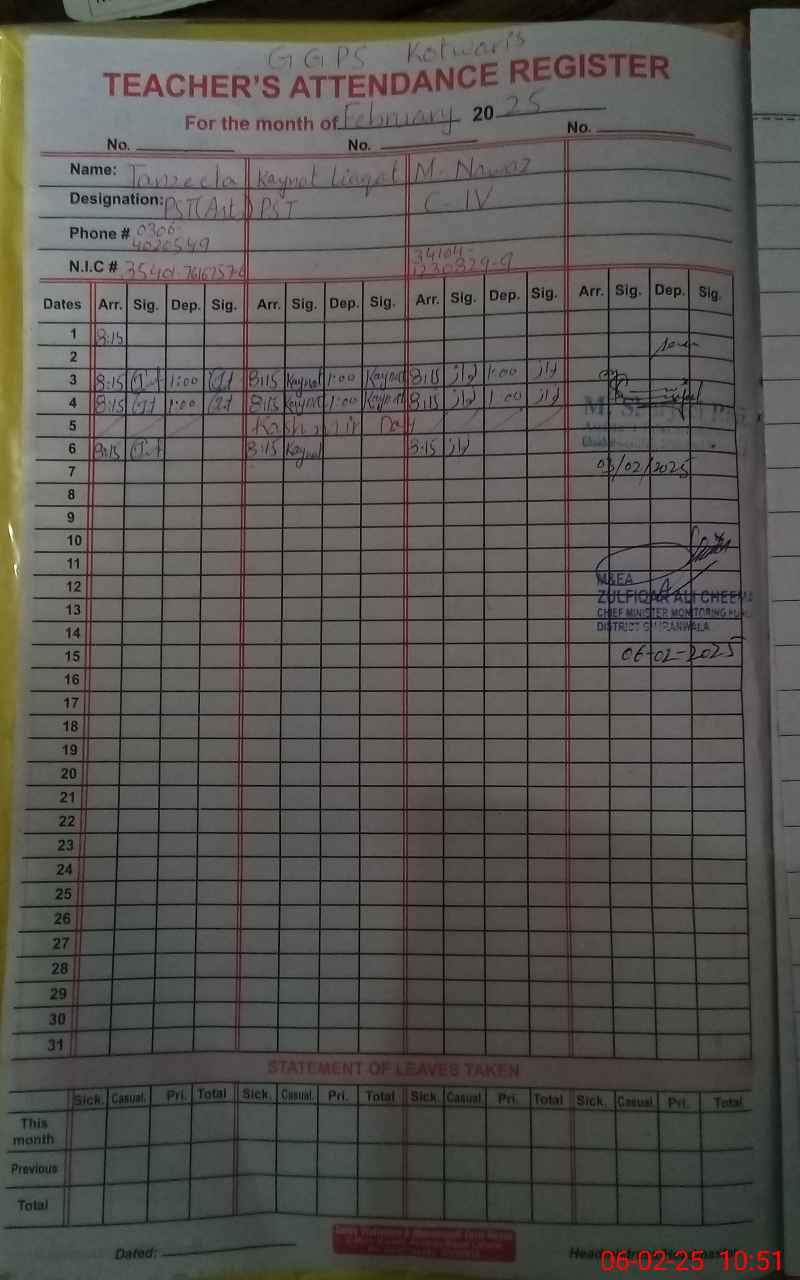 GGPS Kotwaris
TEACHER'S ATTENDANCE REGISTER
For the month of February 2025
No. No. No.
Name: Tanzeela Kaynat Liaqat M. Nawaz
Designation: PST(Art) PST C-IV
Phone # 0306-
4020549
N.I.C # 34104-
Dates Arr. Sig. Dep. Sig. Arr. Sig. Dep. Sig. Arr. Sig. Dep. Sig. Arr. Sig. Dep. Sig.
1 8:15
2
3 8:15 1:00 8:15 Kaynat 1:00 Kaynat 8:15 نواز 1:00 نواز
4 8:15 1:00 8:15 Kaynat 1:00 Kaynat 8:15 نواز 1:00 نواز
5 Kashmir Day
6 8:15 8:15 Kaynat 8:15 نواز
7 03/02/2025
8
9
10
11
12 M&EA
ZULFIQAR ALI CHEEMA
13 CHIEF MINISTER MONITORING
14 DISTRICT GUJRANWALA
15 06-02-2025
16
17
18
19
20
21
22
23
24
25
26
27
28
29
30
31
STATEMENT OF LEAVES TAKEN
Sick. Casual. Pri. Total Sick. Casual. Pri. Total Sick. Casual. Pri. Total Sick. Casual Pri. Total
This month
Previous
Total
Dated:
06-02-25 10:51